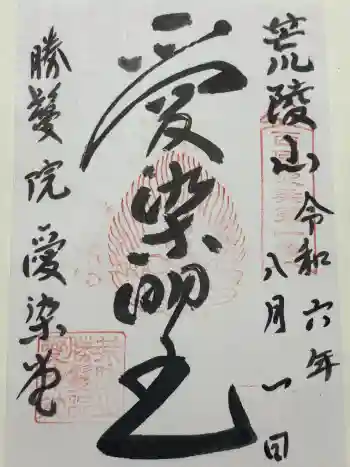 荒陵山
令和六年
八月一日
愛染明王
勝鬘院 愛染堂